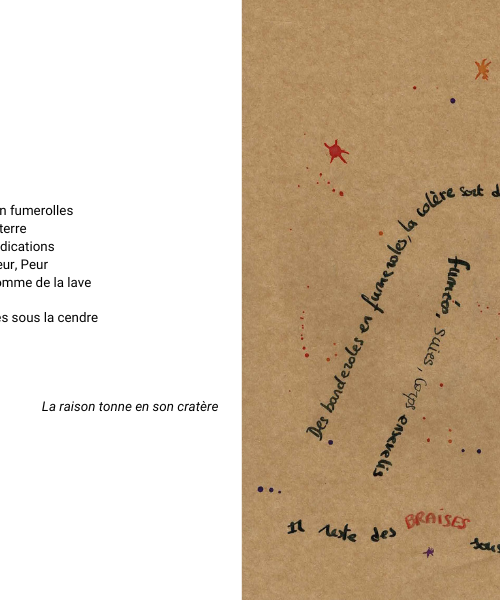 n fumerolles
terre
dications
eur, Peur
omme de la lave
es sous la cendre
La raison tonne en son cratère
Des banderoles en fumeroles, la colère sort d
fumée, suies, Corps ensevelis
Il reste des BRAISES
sous